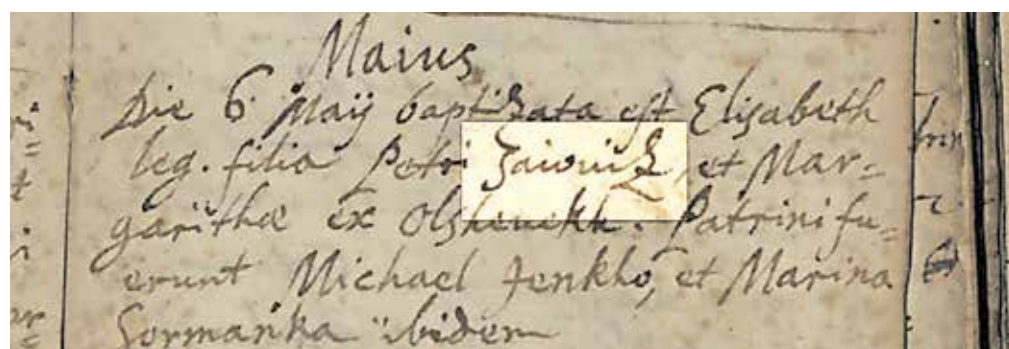 Maius
Die 6 Maÿ baptizata est Elisabeth
leg. filia Petri Zaiouiz, et Mar=
garithæ ex Olsheuekh. Patrini fu=
erunt Michael Jenkho, et Marina
Gormanka ibidem